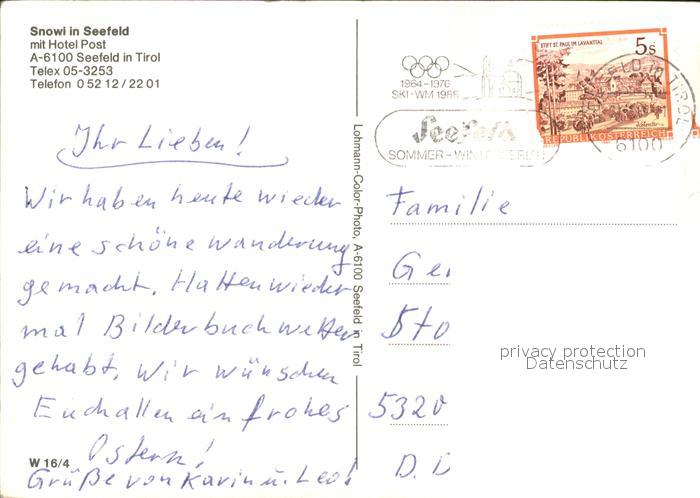 Snowi in Seefeld
mit Hotel Post
A-6100 Seefeld in Tirol
Telex 05-3253
Telefon 0 52 12 / 22 01
Ihr Lieben!
Wir haben heute wieder
eine schöne Wanderung
gemacht. Hatten wieder
mal Bilderbuchwetter
gehabt. Wir wünschen
Euch allen ein frohes
Ostern!
Grüße von Karin u. Leo!
W 16/4
Lohmann-Color-Photo, A-6100 Seefeld in Tirol
1964-1976
SKI-WM 1985
Seefeld
SOMMER - WINTER
STIFT ST. PAUL IM LAVANTTAL
5 s
REPUBLIK ÖSTERREICH
TIROL
6100
Familie
Gei
Sto
5320
D. D
privacy protection
Datenschutz